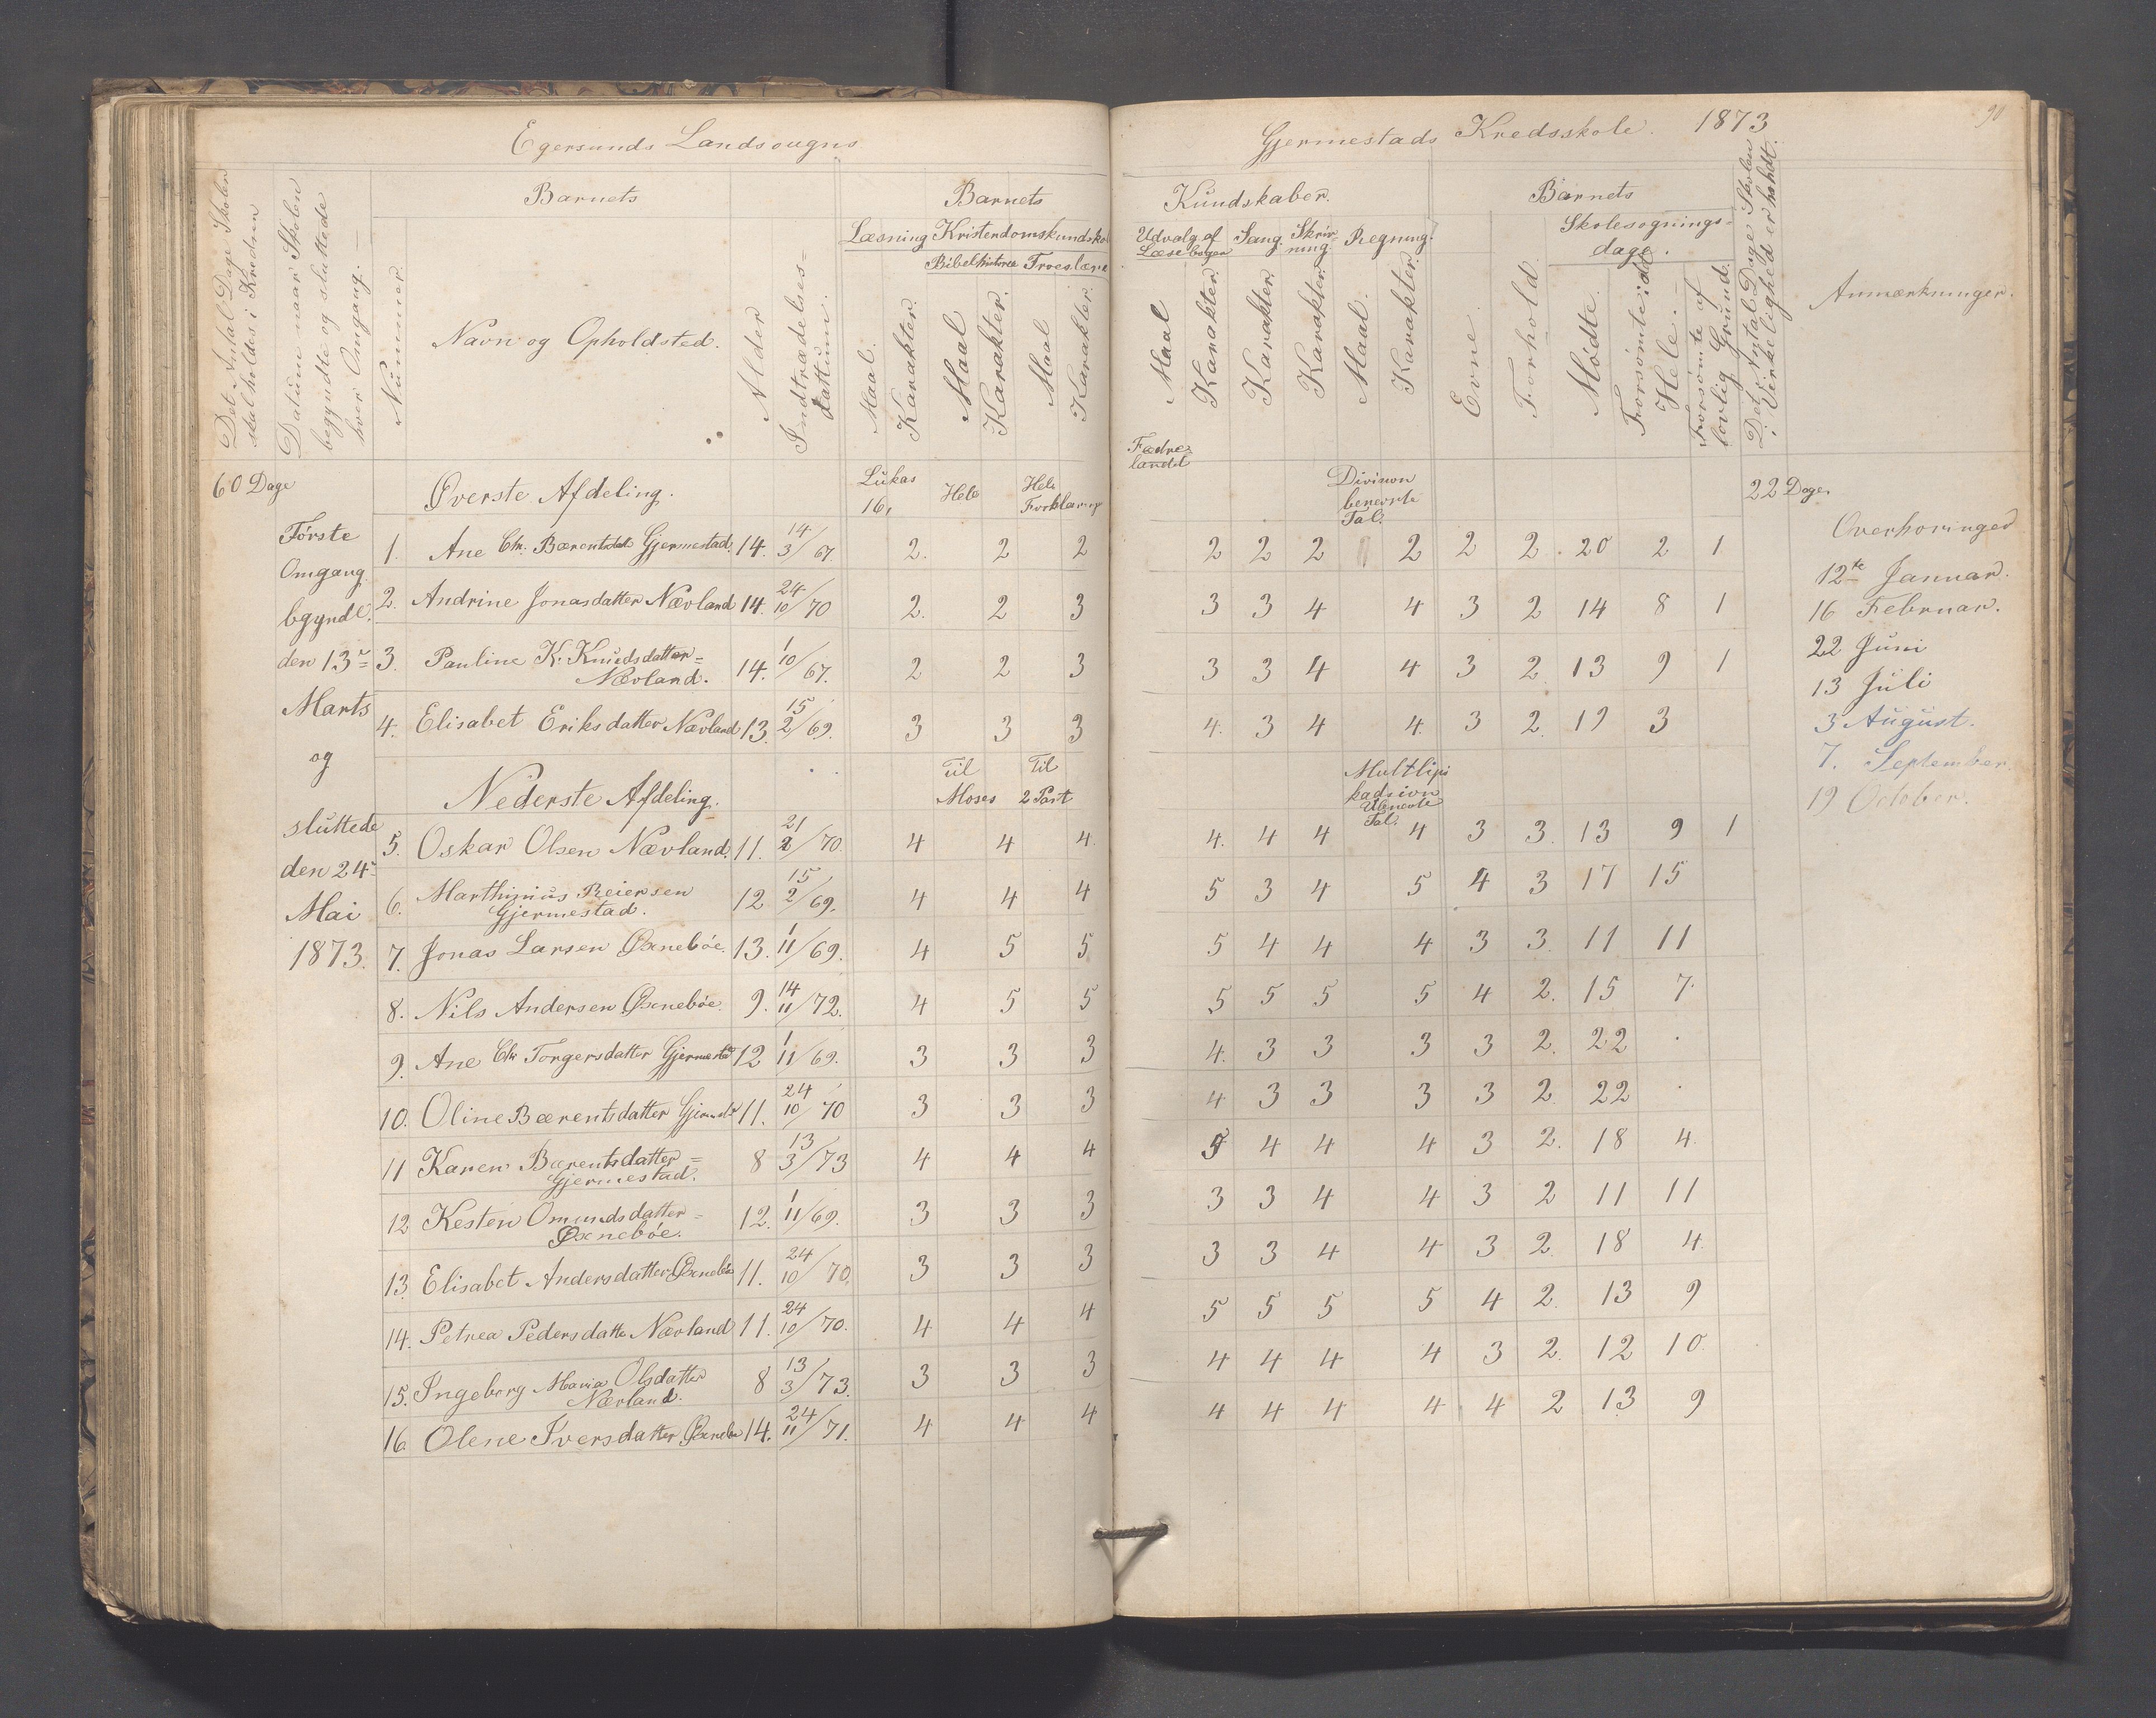 Egersunds Landsougns
Gjermestads Kredsskole. 1873
90
Det Antal Dage Skolen
skal holdes i Kredsen
Datum naar Skolen
begyndte og sluttede
hver Omgang.
Barnets
Nummer
Navn og Opholdsted.
Alder
Indtrædelses-
dattum.
Barnets
Læsning Kristendomskundskab
Bibelhistorie Troeslære
Maal. Karakter. Maal Karakter. Maal Karakter.
Kundskaber.
Udvalg af Læsebogen Sang. Skrivning. Regning.
Maal Karakter. Karakter. Karakter. Maal. Karakter.
Barnets
Evne. Forhold.
Skolesøgnings-
dage.
Mødte. Forsømte: Hele.
Forsømte af lovlig Grund.
Det Antal Dage Skolen
i Virkelighed er holdt.
Anmærkninger.
60 Dage
Øverste Afdeling. Lukas 16, Hele Hele Forklaring Fædrelandet Division benevnte Tal. 22 Dage
Første
Omgang
bgyndte.
den 13de
Marts
og
sluttede
den 24de
Mai
1873.
1. Ane Chr. Bærentsdat Gjermestad. 14. 14/3 67. 2. 2 2 2 2 2 2 2 2. 20 2 1
2. Andrine Jonasdatter Nævland 14. 24/10 70 2. 2 3 3 3 4 4 3 2 14 8 1
3. Pauline K. Knudsdatter= Nævland. 14. 1/10 67. 2 2 3 3 3 4 4 3 2. 13 9 1
4. Elisabet Eriksdatter Nævland 13. 15/2 69. 3 3 3 4. 3 4 4. 3 2. 19 3
Nederste Afdeling. Til Moses Til 2 Part Multlipikadsion Ubnevnte Tal.
5. Oskar Olsen Nævland. 11. 21/2 70. 4 4 4. 4. 4 4 4 3 3. 13 9 1
6. Marthinius Reiersen Gjermestad. 12 15/2 69. 4 4 4 5 3 4 5 4 3 17 15
7. Jonas Larsen Øxnebøe. 13. 1/11 69. 4 5 5 5 4 4 4 3 3. 11 11
8. Nils Andersen Øxnebøe. 9. 14/11 72. 4 5 5 5 5 5 5 4 2. 15 7.
9. Ane Chr Torgersdatter Gjermestad 12 1/11 69. 3 3 3 4. 3 3 3 3 2. 22 .
10. Oline Bærentsdatter 11. 24/10 70 3 3 3 4 3 3 3 3 2. 22 .
11 Karen Bærentsdatter= Gjermestad. 8 13/3 73 4 4 4 4 4 4 3 2. 18 4.
12 Kesten Omundsdatter= Øxnebøe. 12. 1/11 69. 3 3 3 3 3 4 4 3 2 11 11
13. Elisabet Andersdatter Øxnebøe 11. 24/10 70. 3 3 3 3 3 4 4 3 2. 18 4.
14. Petrea Pedersdatte Nævland 11. 24/10 70. 4 4 4 5 5 5 5 4 2. 13 9
15. Ingeborg Maria Olsdatter Nævland. 8 13/3 73. 3 3 3 4 4 4 4 3 2. 12 10.
16. Olene Iversdatter Øxnebøe 14. 24/11 71. 4 4 4 4 4 4 4 4 2 13 9
Overhøringer
12te Januar.
16 Februar.
22 Juni
13 Juli
3 August.
7. September.
19 October.